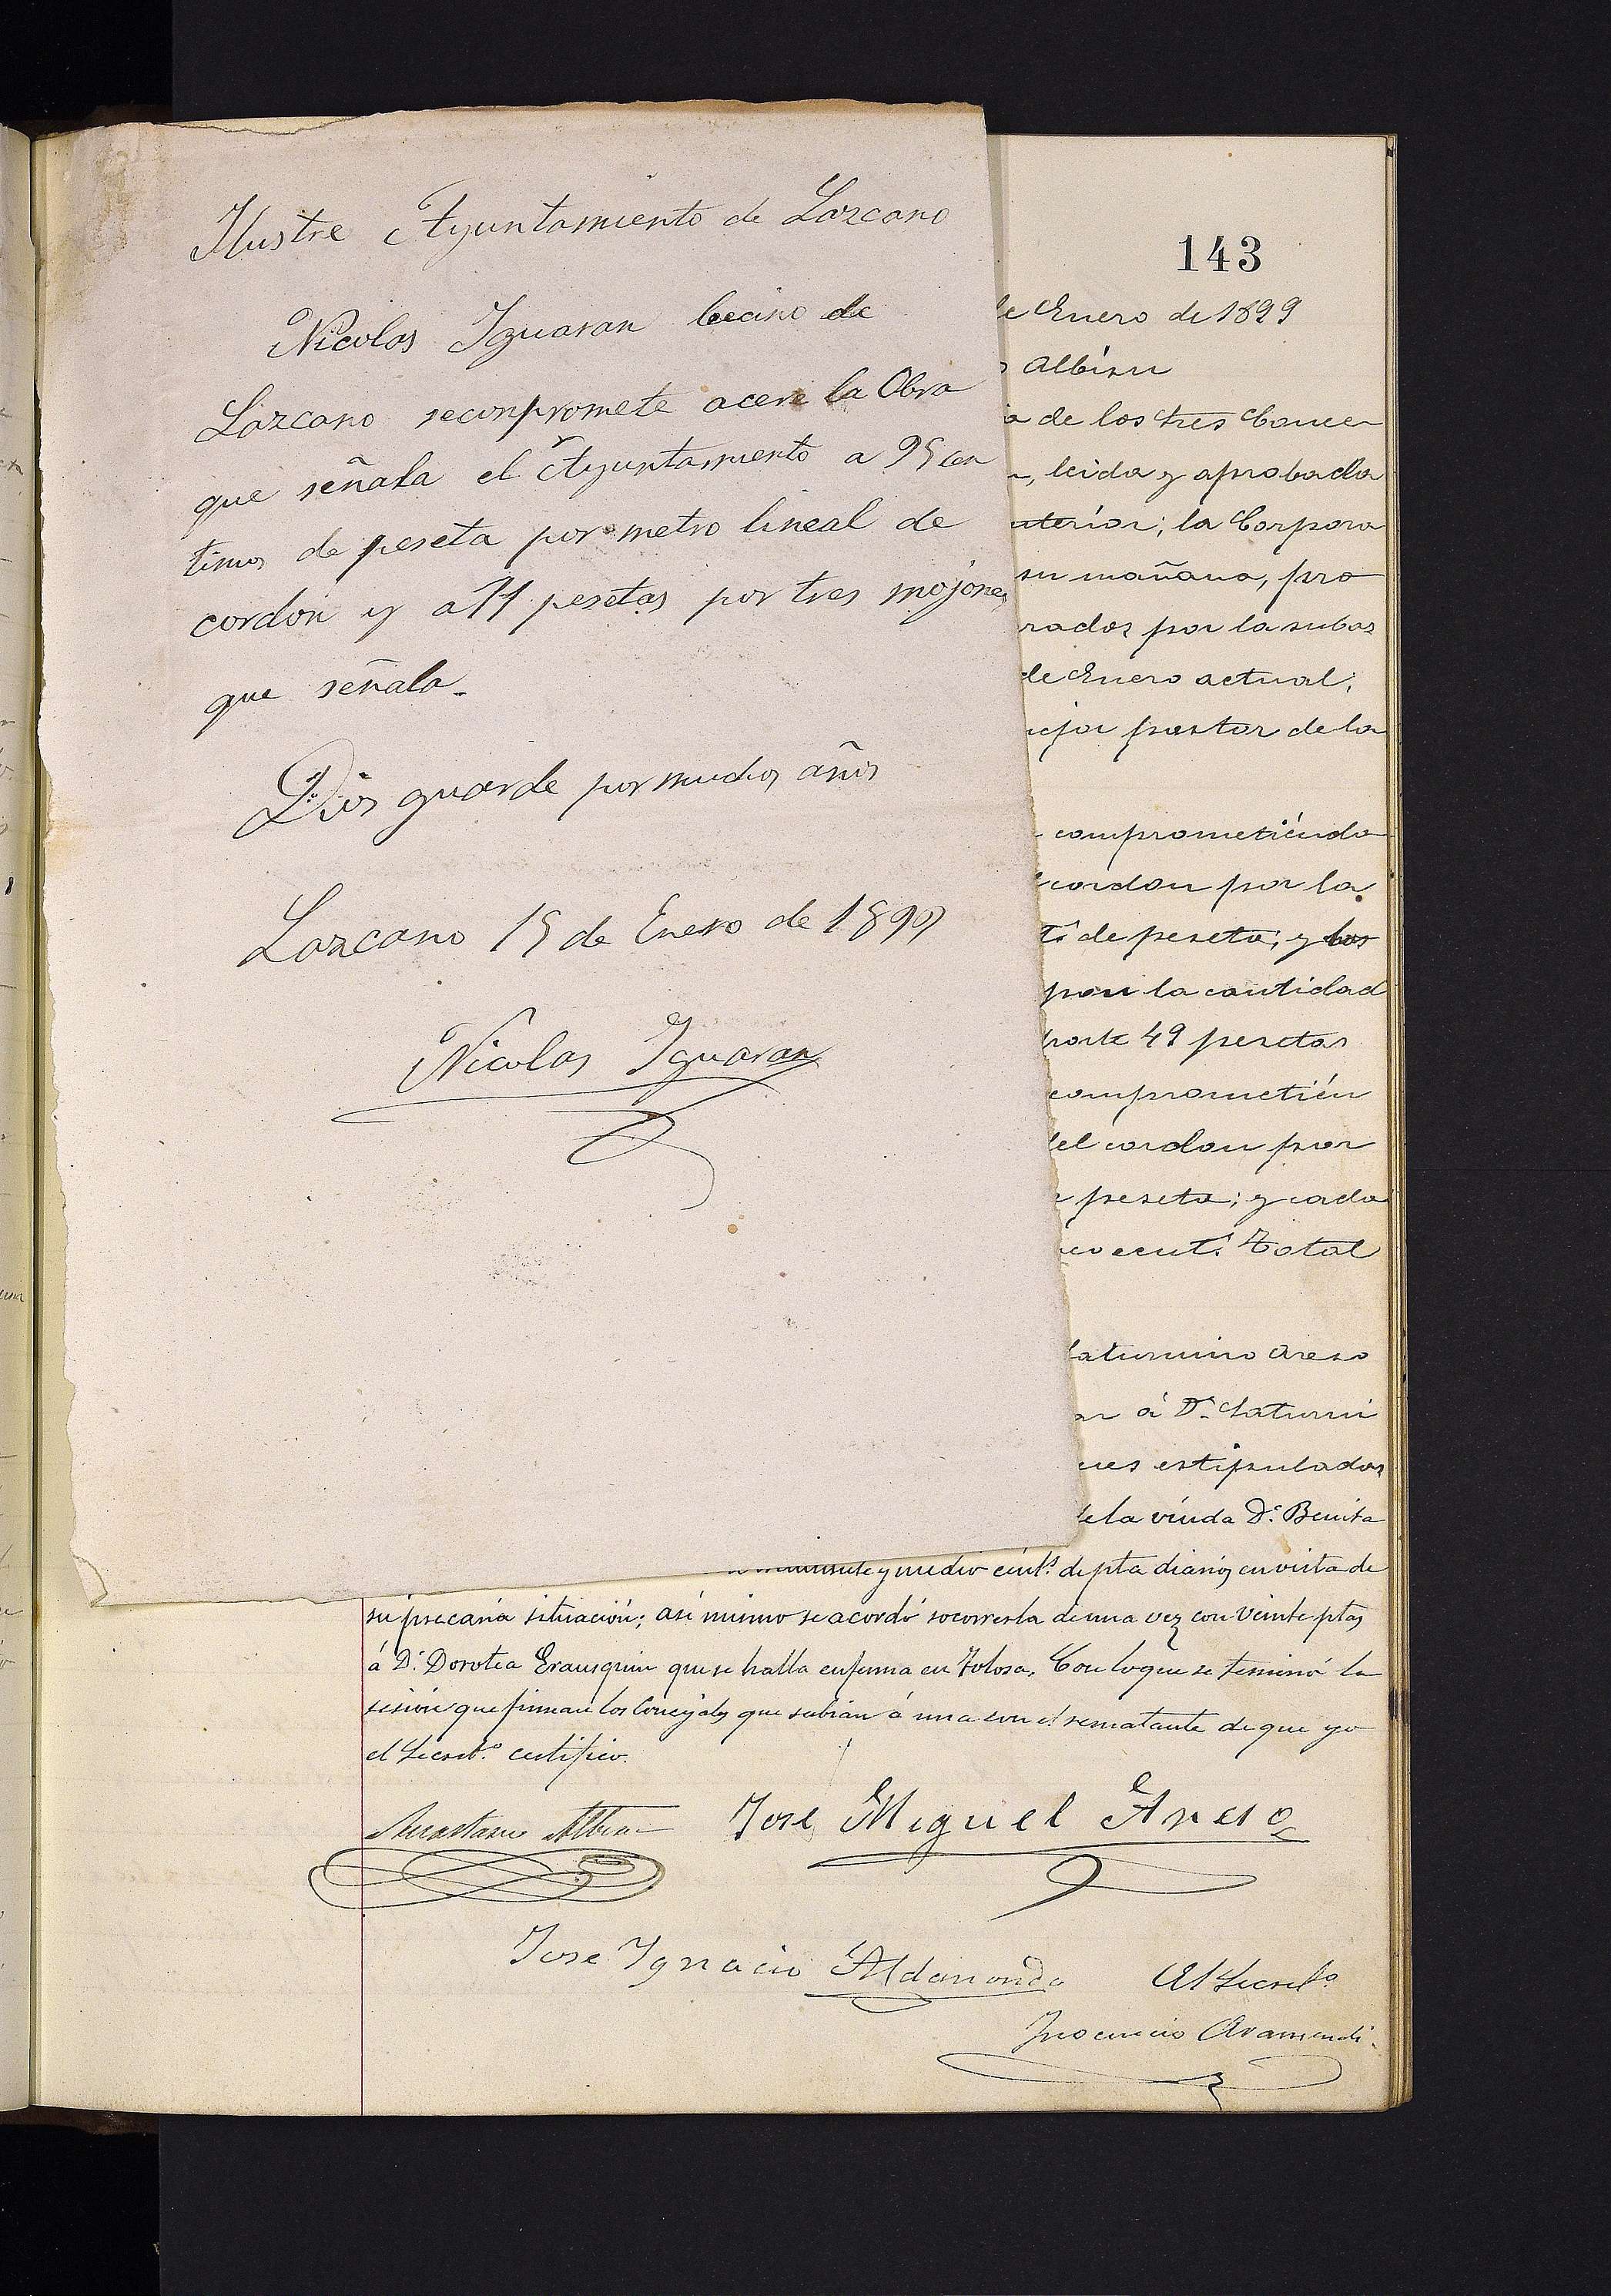 Ilustre Ayuntamiento de Lazcano
Nicolas Iguaran becino de
Lazcano seconpromete acere la Obra
que señala el Ayuntamiento a 95 cen
timos de peseta por metro lineal de
cordón y a 11 pesetas por tres mojones
que señala.
Dios guarde por muchos años
Lazcano 15 de Enero de 1899
Nicolas Iguaran
143
de Enero de 1899
Albisu
de los tres Conce
leida y aprobada
la Corpora
mañana, pro
por la subas
de Enero actual,
postor de la
comprometiéndo
cordon por la
de peseta; y los
por la cantidad
49 pesetas
comprometién
del cordon por
peseta; y cada
cent.s Total
Saturnino Areso
á D.n Saturni
estipulados
de la viuda D.ª Benita
y medio cént.s de pta diarios en vista de
su precaria situación; así mismo se acordó socorrerla de una vez con veinte ptas
á D.ª Dorotea Erausquin que se halla enferma en Tolosa. Con lo que se terminó la
sesión que firman los Concejales que sabían á una con el rematante de que yo
el Secret.º certifico.
Anastasio Albisu
José Miguel Areso
Jose Ignacio Aldanondo
El Secret.º
Inocencio Aramendi.